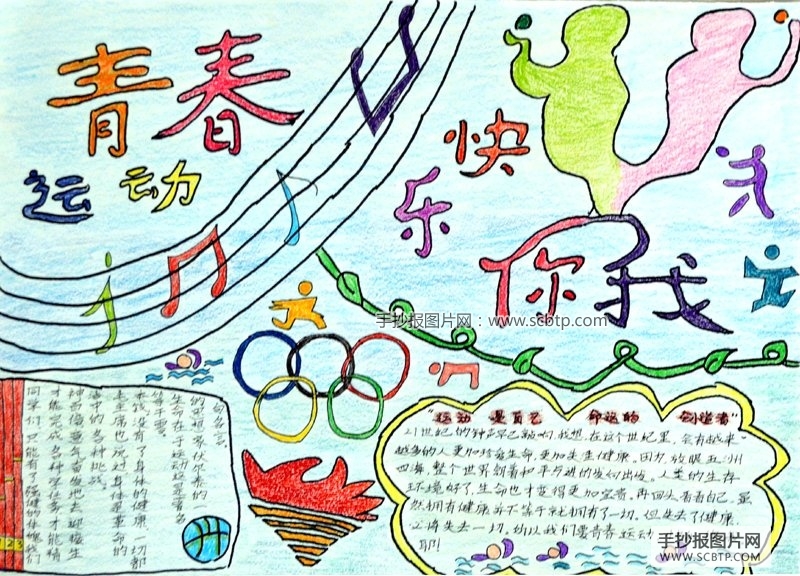 青春
运动
快
乐
你我
手抄报图片网：www.scbtp.com
同学们只能有了强健的体魄我们
才能完成各种学任务才能精
神百倍意气奋发地去迎接生
活中的各种挑战。
主席也说过身体是革命的
来说没有了身体的健康一切都
等于零。
生命在于运动这是著名
的思想家伏尔泰的
句名言。
"运动 是自己 命运的 创造者"
21世纪的钟声早已敲响,我想,在这个世纪里,会有越来
越多的人更加珍爱生命,更加关注健康。因为,放眼五洲
四海,整个世界朝着和平与进的方向出发。人类的生存
环境好了,生命也才变得更加宝贵。再回头看看自己,虽
然拥有健康并不等于就拥有了一切。但失去了健康,
必将失去一切,所以我们要青春运动
耶!
手抄报图片网
WWW.SCBTP.COM